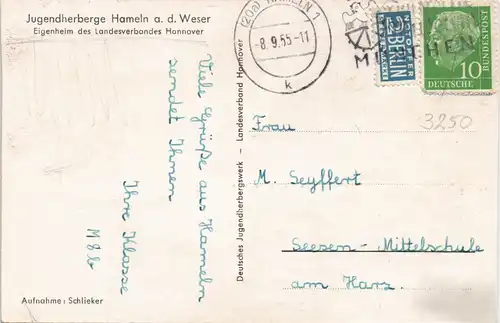 Jugendherberge Hameln a. d. Weser
Eigenheim des Landesverbandes Hannover
Viele Grüße aus Hameln
sendet Ihnen
Ihre Klasse
M8b
Aufnahme: Schlieker
Deutsches Jugendherbergswerk - Landesverband Hannover
(20a) HAMELN 1
-8.9.55-11
k
NOTOPFER
2 BERLIN
STEUERMARKE
10
DEUTSCHE
BUNDESPOST
3250
Frau
M. Seyffert
Seesen - Mittelschule
am Harz.